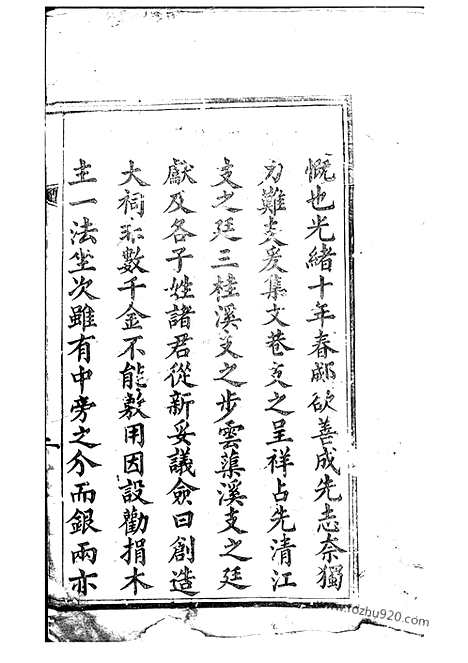 慨也光緒十年春鄺欲善成先志奈獨
為難矣爰集文巷支之呈祥占先清江
支之廷三桂溪支之步雲蕖溪支之廷
獻及各子姓諸君從新妥議僉曰創造
大祠非數千金不能敷用因設勸捐木
主一法坐次雖有中旁之分而銀兩亦
www.fozhu920.com